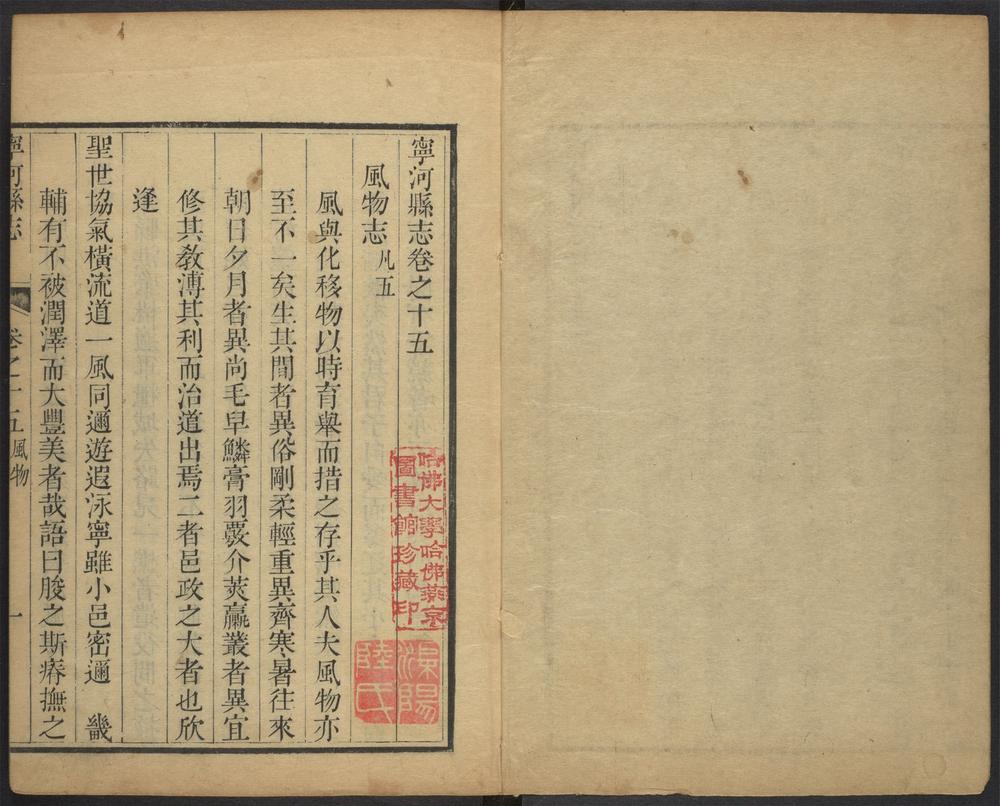 寧河縣志卷之十五
風物志凡五
風與化移物以時育舉而措之存乎其人夫風物亦
至不一矣生其間者異俗剛柔輕重異齊寒暑往來
朝日夕月者異尚毛皁鱗膏羽覈介莢臝叢者異宜
修其敎溥其利而治道出焉二者邑政之大者也欣
逢
聖世協氣橫流道一風同邇遊遐泳寧雖小邑密邇　畿
輔有不被潤澤而大豐美者哉語曰朘之斯瘠撫之
寧河縣志　卷之十五風物　一
哈佛大學哈佛燕京
圖書館珍藏印
陽
陸氏